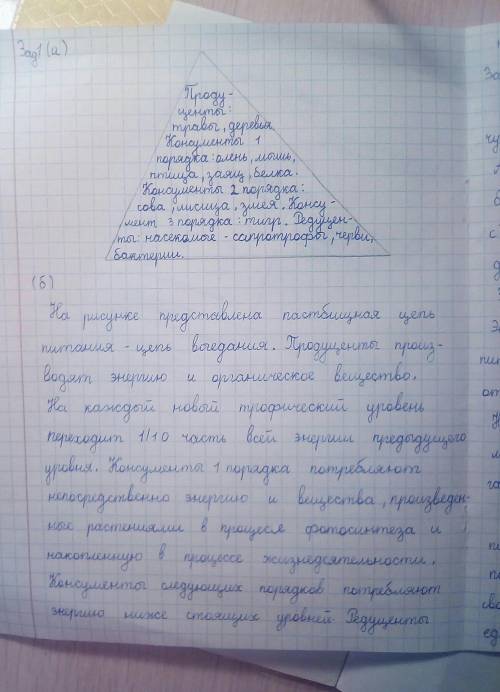 Зад1 (а)
Проду-
центы:
травы, деревья
Консументы 1
порядка: олень, мышь,
птица, заяц, белка.
Консументы 2 порядка:
сова, лисица, змея. Консу-
мент 3 порядка: тигр. Редуцен-
ты: насекомые - сапротрофы, черви,
бактерии.
(б)
На рисунке представлена пастбищная цепь
питания - цепь выедания. Продуценты произ-
водят энергию и органическое вещество.
На каждый новый трофический уровень
переходит 1/10 часть всей энергии предыдущего
уровня. Консументы 1 порядка потребляют
непосредственно энергию и вещества, произведен-
ные растениями в процессе фотосинтеза и
накопленную в процессе жизнедеятельности.
Консументы следующих порядков потребляют
энергию ниже стоящих уровней. Редуценты